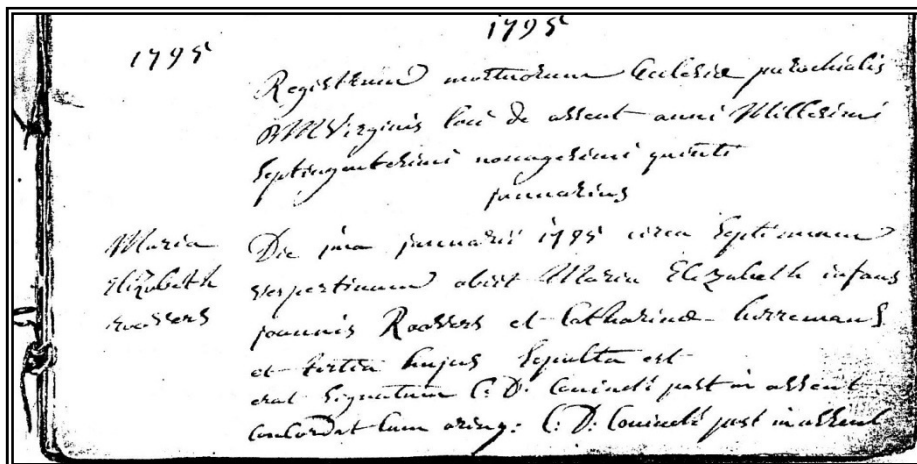 1795
1795
Registrum mortuorum Ecclesiæ parochialis
BMVirginis loci de assent anni Millesimi
Septingentesimi nonagesimi quinti
januarius
Maria
Elizabeth
Die januarii 1795 circa Septimam
vespertinam obiit Maria Elizabeth infans
joannis Roosers et Catharinæ
et tertia hujus Sepulta est
erat Signatum C: D: past in assent
concordat cum oring: C: D: past in assent